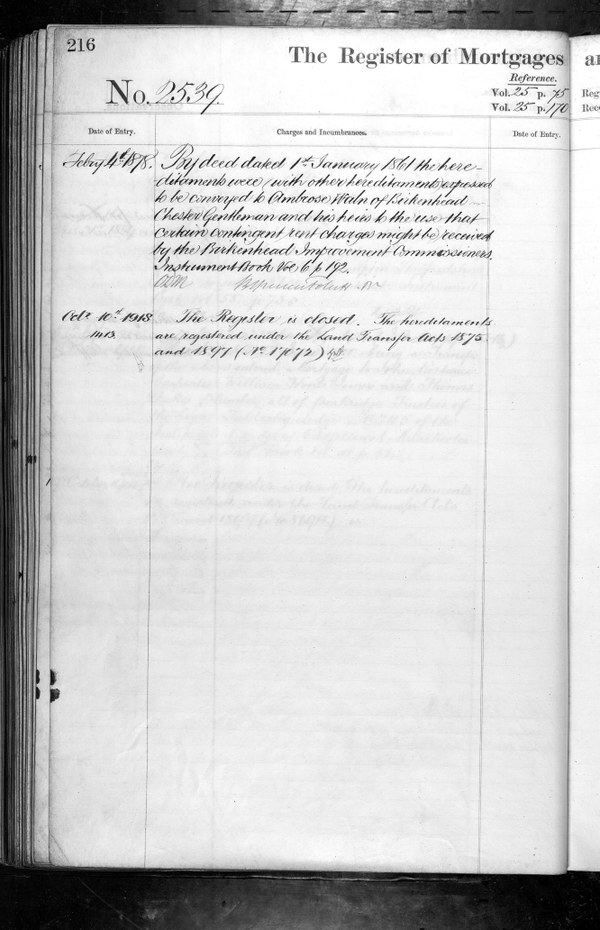 216
The Register of Mortgages
Reference.
No. 2539.
Vol. 25 p. 75
Vol. 35 p. 170
Date of Entry.
Charges and Incumbrances.
Date of Entry.
Feby 4th 1878.
By deed dated 1st January 1861 the here-
ditaments were (with other hereditaments) expressed
to be conveyed to Ambrose Waln of Birkenhead
Chester Gentleman and his heirs to the use that
certain contingent rent charges might be received
by the Birkenhead Improvement Commissioners.
Instrument Book Vol 6 p 192.
Octr 10th 1918
The Register is closed. The hereditaments
are registered under the Land Transfer Acts 1875
and 1897 (No. 17072)
an
Reg
Rec